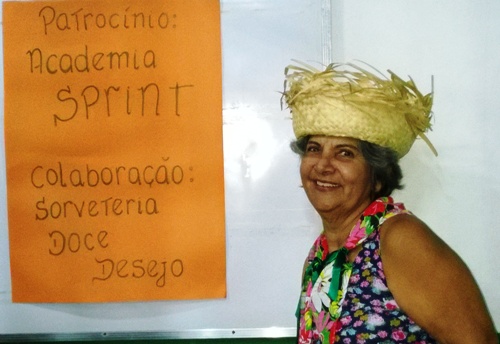 Patrocínio:
Academia
SPrINT
Colaboração:
Sorveteria
Doce
Desejo